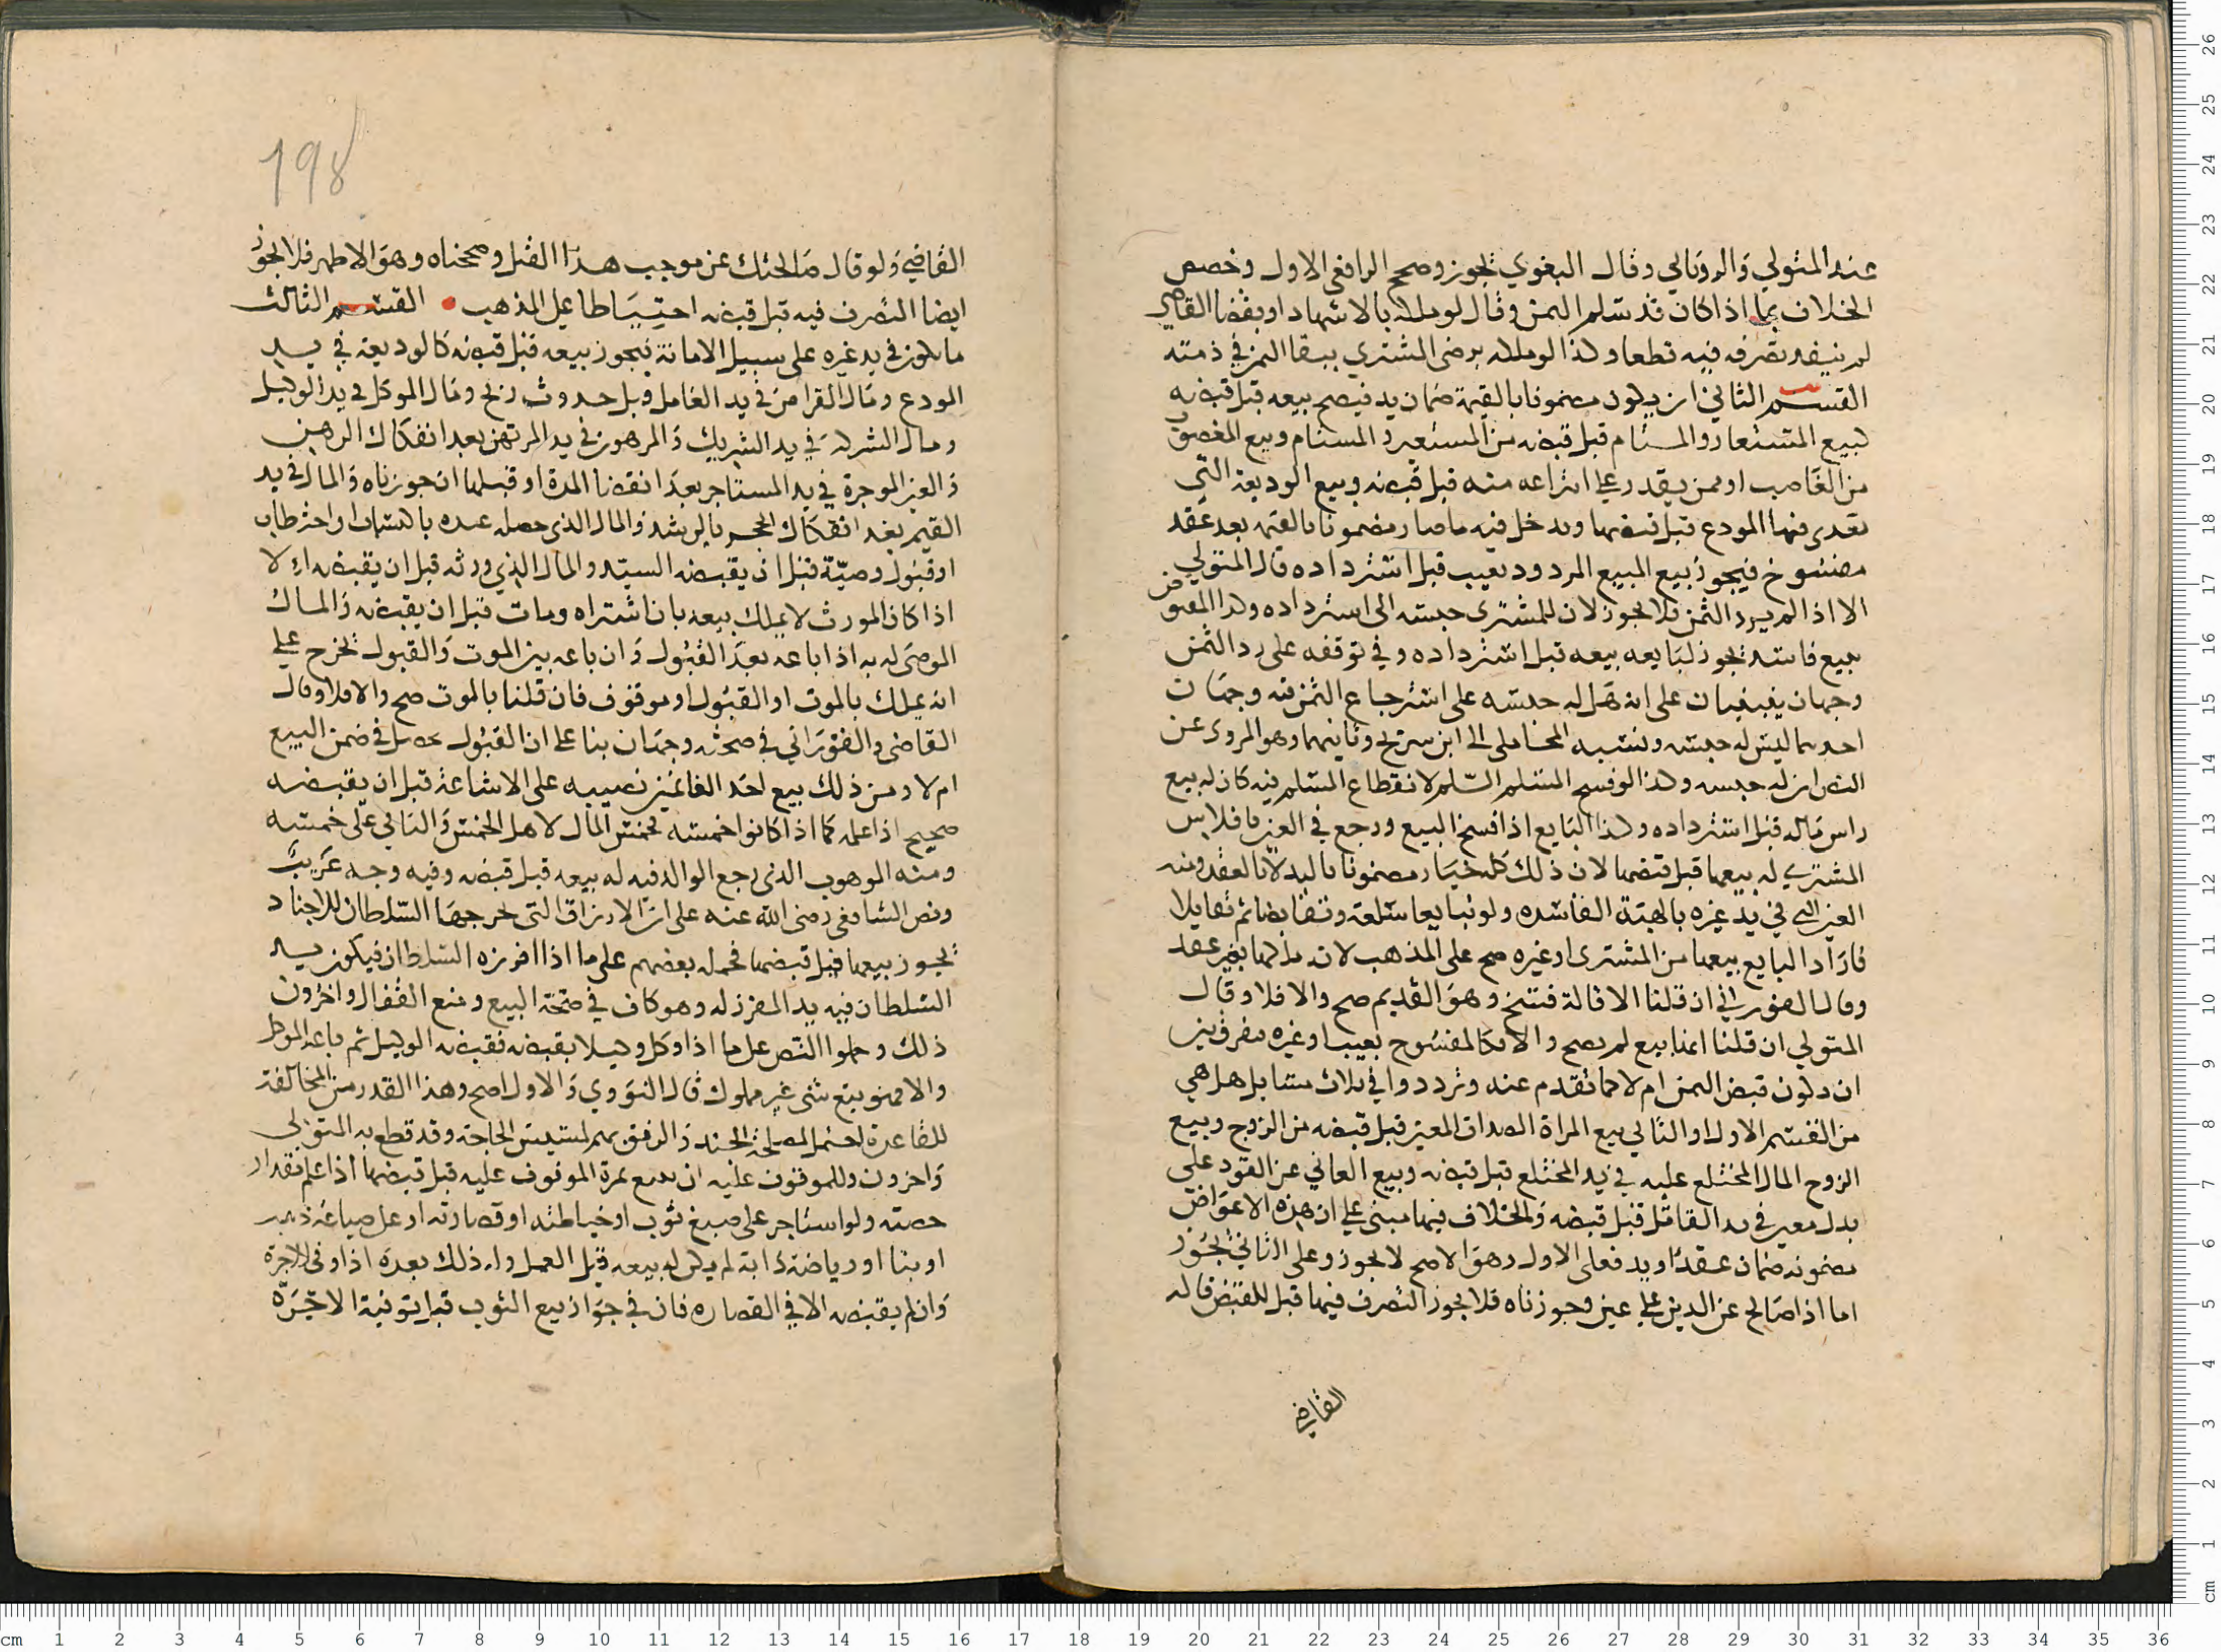 عند المتولي والروياني وقال البغوي يجوز وصحح الرافعي الاول وخصص
الخلاف بما اذا كان قد تسلم الثمن وقال لو ملكه بالاشهاد او بقضا القاضي
لم ينفد تصرفه فيه قطعا وكذا لو ملكه برضى المشتري ببقا الثمن في ذمته
القسم الثاني ان يكون مضمونا بالقيمة ضمان يد فيصح بيعه قبل قبضه
كبيع المستعار والمستام قبل قبضه من المستعير والمستام وبيع المغصوب
من الغاصب او ممن يقدر على انتزاعه منه قبل قبضه وبيع الوديعة التي
تعدى فيها المودع قبل قبضها ويدخل فيه ما صار مضمونا بالقيمه بعد عقد
مفسوخ فيجوز بيع المبيع المردود بعيب قبل استرداده قال المتولي
الا اذا لم يرد الثمن فلا يجوز لان للمشتري حبسه الى استرداده وكذا المقبوض
ببيع فاسد يجوز لبايعه بيعه قبل استرداده وفي توقفه على رد الثمن
وجهان على انه هل له حبسه على استرجاع الثمن فيه وجهان
احدهما ليس له حبسه ونسبه المحاملي الى ابن سريج وثانيهما وهو المروى عن
النص ان له حبسه وكذا لو فسخ المسلم السلم لانقطاع المسلم فيه كان له بيع
راس ماله قبل استرداده وكذا البايع اذا فسخ البيع ورجع في العين بافلاس
المشتري له بيعها قبل قبضها لان ذلك كله خيار مضمونا باليد لا بالعقد ومنه
العين التي في يد غيره بالهبة الفاسده ولو تبايعا سلعة وتقابضا ثم تقايلا
فاراد البايع بيعها من المشترى او غيره صح على المذهب لانه ملكها بغير عقد
وقال الفوراني ان قلنا الاقالة فسخ وهو القديم صح والا فلا وقال
المتولي ان قلنا انها بيع لم يصح والا فكالمفسوخ بعيب او غيره مفرق بين
ان يكون قبض الثمن ام لا كما تقدم عنه وترددوا في ثلاث مسايل هل هي
من القسم الاول او الثاني بيع المراة الصداق المعين قبل قبضه من الزوج وبيع
الزوج المال المختلع عليه في يد المختلع قبل قبضه وبيع العافي عن القود على
بدل معين في يد القاتل قبل قبضه والخلاف فيها مبني على ان هذه الاعواض
مضمونه ضمان عقد او يد فعلى الاول وهو الاصح لا يجوز وعلى الثاني يجوز
اما اذا صالح عن الدين على عين وجوزناه فلا يجوز التصرف فيها قبل القبض قاله
القاضي
198
القاضي ولو قال صالحتك عن موجب هذا القتل وصححناه وهو الاظهر فلا يجوز
ايضا التصرف فيه قبل قبضه احتياطا على المذهب • القسم الثالث
ما يكون في يد غيره على سبيل الامانة فيجوز بيعه قبل قبضه كالوديعة في يد
المودع ومال القراض في يد العامل قبل حدوث ربح ومال الموكل في يد الوكيل
ومال الشركة في يد الشريك والمرهون في يد المرتهن بعد انفكاك الرهن
والعين الموجرة في يد المستاجر بعد انقضا المدة او قبلها ان جوزناه والمال في يد
القيم بعد انفكاك الحجر بالرشد والمال الذي حصله عبده باكتساب او احتطاب
او قبول وصية قبل ان يقبضه السيد والمال الذي ورثه قبل ان يقبضه اي لا
اذا كان المورث لا يملك بيعه بان اشتراه ومات قبل ان يقبضه والمال
الموصى له به اذا باعه بعد القبول وان باعه بين الموت والقبول تخرج على
انه يملك بالموت او القبول او موقوف فان قلنا بالموت صح والا فلا وقال
القاضي والفوراني في صحته وجهان بنا على ان القبول يحصل في ضمن البيع
ام لا ومن ذلك بيع احد الغانمين نصيبه على الاشاعة قبل ان يقبضه
صحيح اذا علمه كما اذا كانوا خمسة فخمس المال لاهل الخمس والباقي على خمسة
ومنه الموهوب الذي رجع الوالد فيه له بيعه قبل قبضه وفيه وجه غريب
ونص الشافعي رضي الله عنه على ان الارزاق التي يخرجها السلطان للاجناد
يجوز بيعها قبل قبضها فحمله بعضهم على ما اذا افرزه السلطان فيكون يد
السلطان فيه يد المفرز له وهو كاف في صحة البيع ومنع القفال واخرون
ذلك وحملوا النص على ما اذا وكل وكيلا بقبضه فقبضه الوكيل ثم باعه الموكل
والا فهو بيع شي غير مملوك قال النووي والاول اصح وهذا القدر من المخالفة
للقاعدة احتمل لمصلحة الجند والرفق بهم لمسيس الحاجة وقد قطع به المتولي
واخرون وللموقوف عليه ان يبيع ثمرة الموقوف عليه قبل قبضها اذا علم مقدار
حصته ولو استاجر على صبغ ثوب او خياطته او قصارته او على صياغة ذهب
او بنا او رياضة دابة لم يكن له بيعه قبل العمل وله ذلك بعده اذا وفى الاجرة
وان لم يقبضه الا في القصاره فان في جواز بيع الثوب قبل توفية الاجرة